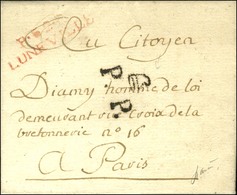 LUNEVILLE
Au Citoyen
Diamy homme de loi
P.P.
demeurant rue croix de la
bretonnerie n° 16
A Paris